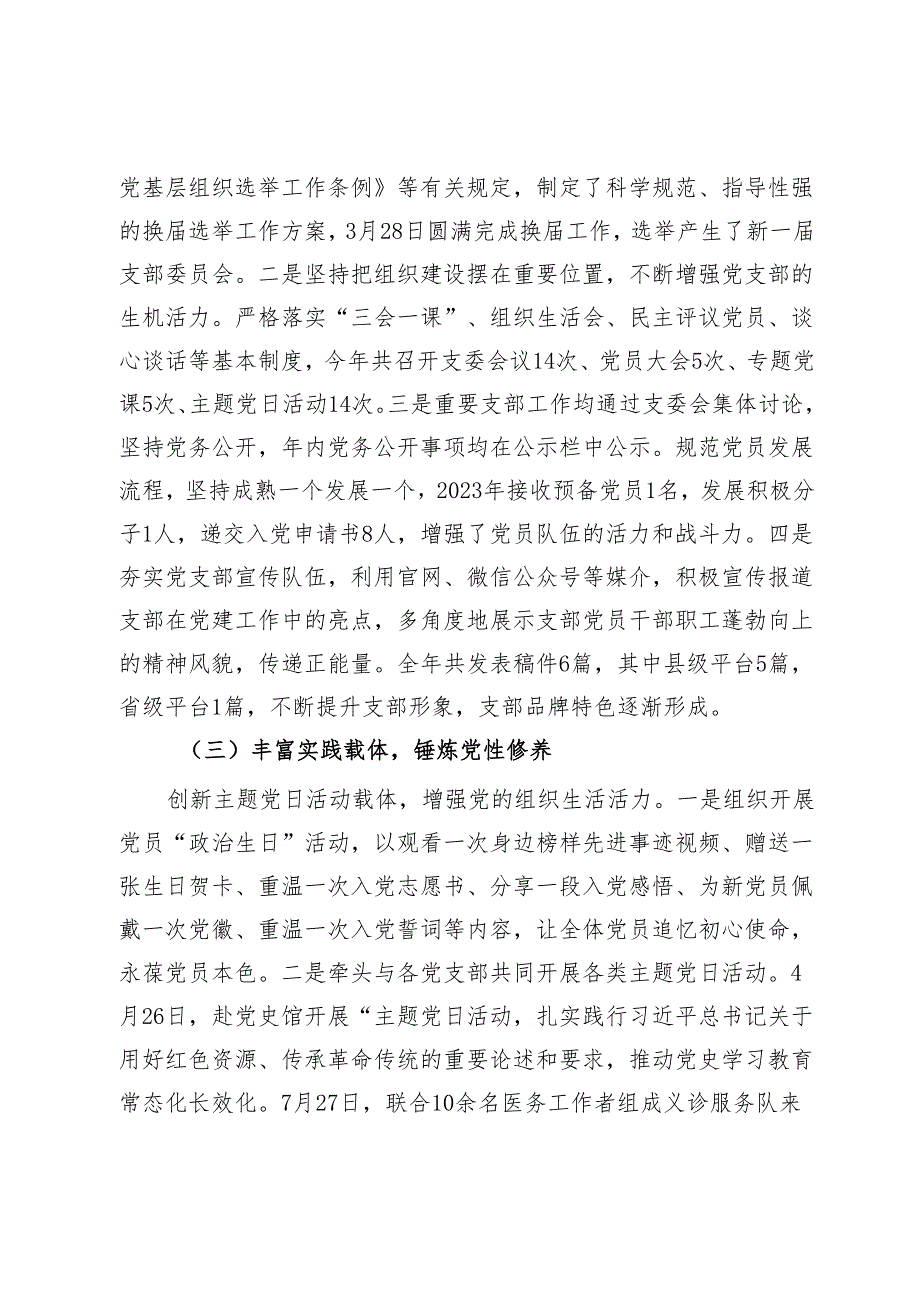 党基层组织选举工作条例》等有关规定，制定了科学规范、指导性强
的换届选举工作方案，3月28日圆满完成换届工作，选举产生了新一届
支部委员会。二是坚持把组织建设摆在重要位置，不断增强党支部的
生机活力。严格落实“三会一课”、组织生活会、民主评议党员、谈
心谈话等基本制度，今年共召开支委会议14次、党员大会5次、专题党
课5次、主题党日活动14次。三是重要支部工作均通过支委会集体讨论，
坚持党务公开，年内党务公开事项均在公示栏中公示。规范党员发展
流程，坚持成熟一个发展一个，2023年接收预备党员1名，发展积极分
子1人，递交入党申请书8人，增强了党员队伍的活力和战斗力。四是
夯实党支部宣传队伍，利用官网、微信公众号等媒介，积极宣传报道
支部在党建工作中的亮点，多角度地展示支部党员干部职工蓬勃向上
的精神风貌，传递正能量。全年共发表稿件6篇，其中县级平台5篇，
省级平台1篇，不断提升支部形象，支部品牌特色逐渐形成。
（三）丰富实践载体，锤炼党性修养
创新主题党日活动载体，增强党的组织生活活力。一是组织开展
党员“政治生日”活动，以观看一次身边榜样先进事迹视频、赠送一
张生日贺卡、重温一次入党志愿书、分享一段入党感悟、为新党员佩
戴一次党徽、重温一次入党誓词等内容，让全体党员追忆初心使命，
永葆党员本色。二是牵头与各党支部共同开展各类主题党日活动。4
月26日，赴党史馆开展“主题党日活动，扎实践行习近平总书记关于
用好红色资源、传承革命传统的重要论述和要求，推动党史学习教育
常态化长效化。7月27日，联合10余名医务工作者组成义诊服务队来